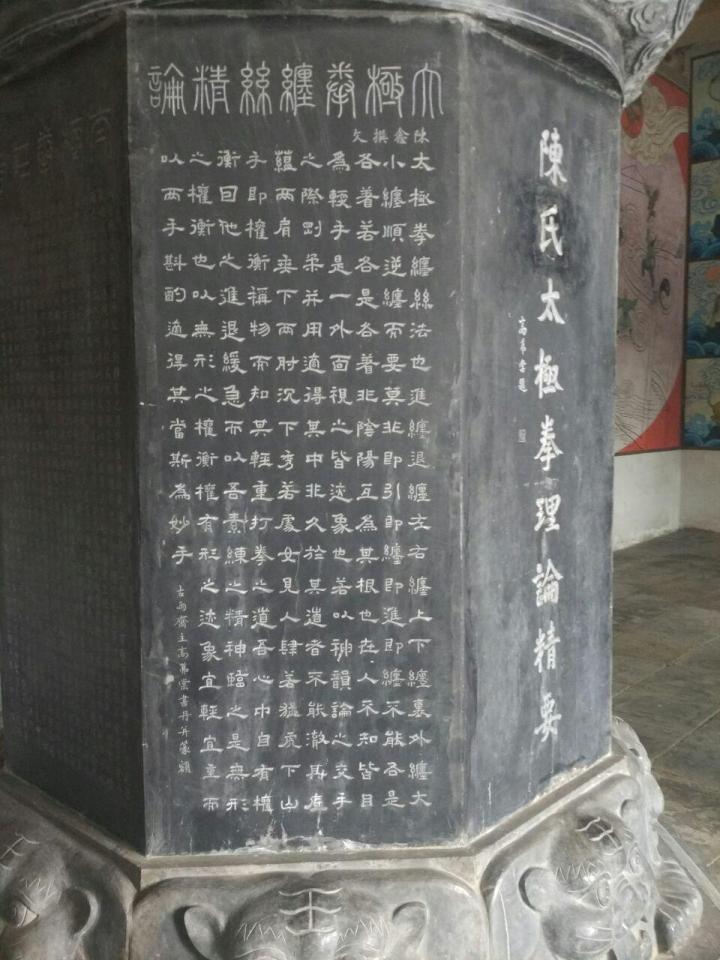 陳氏太極拳理論精要
太極拳纏絲精論
陳鑫撰文
太極拳纏絲法也進纏退纏左右纏上下纏裏外纏大
小纏順逆纏而要莫非即引即纏即進即纏不能各是
各著若各是各著非陰陽互為其根也在人不知皆目
為輭手是一外面視之皆迹象也若以神韻論之交手
之際剛柔并用適得其中非久於其道者不能澈其底
蘊兩肩垂下兩肘沉下秀若處女見人肆若猛虎下山
手即權衡稱物而知其輕重打拳之道吾心中自有權
衡因他之進退緩急而以吾素練之精神臨之是無形
之權衡也以無形之權衡權有形之迹象宜輕宜重而
以兩手斟酌適得其當斯為妙手
古雨齋主高希雲書丹并篆額
王